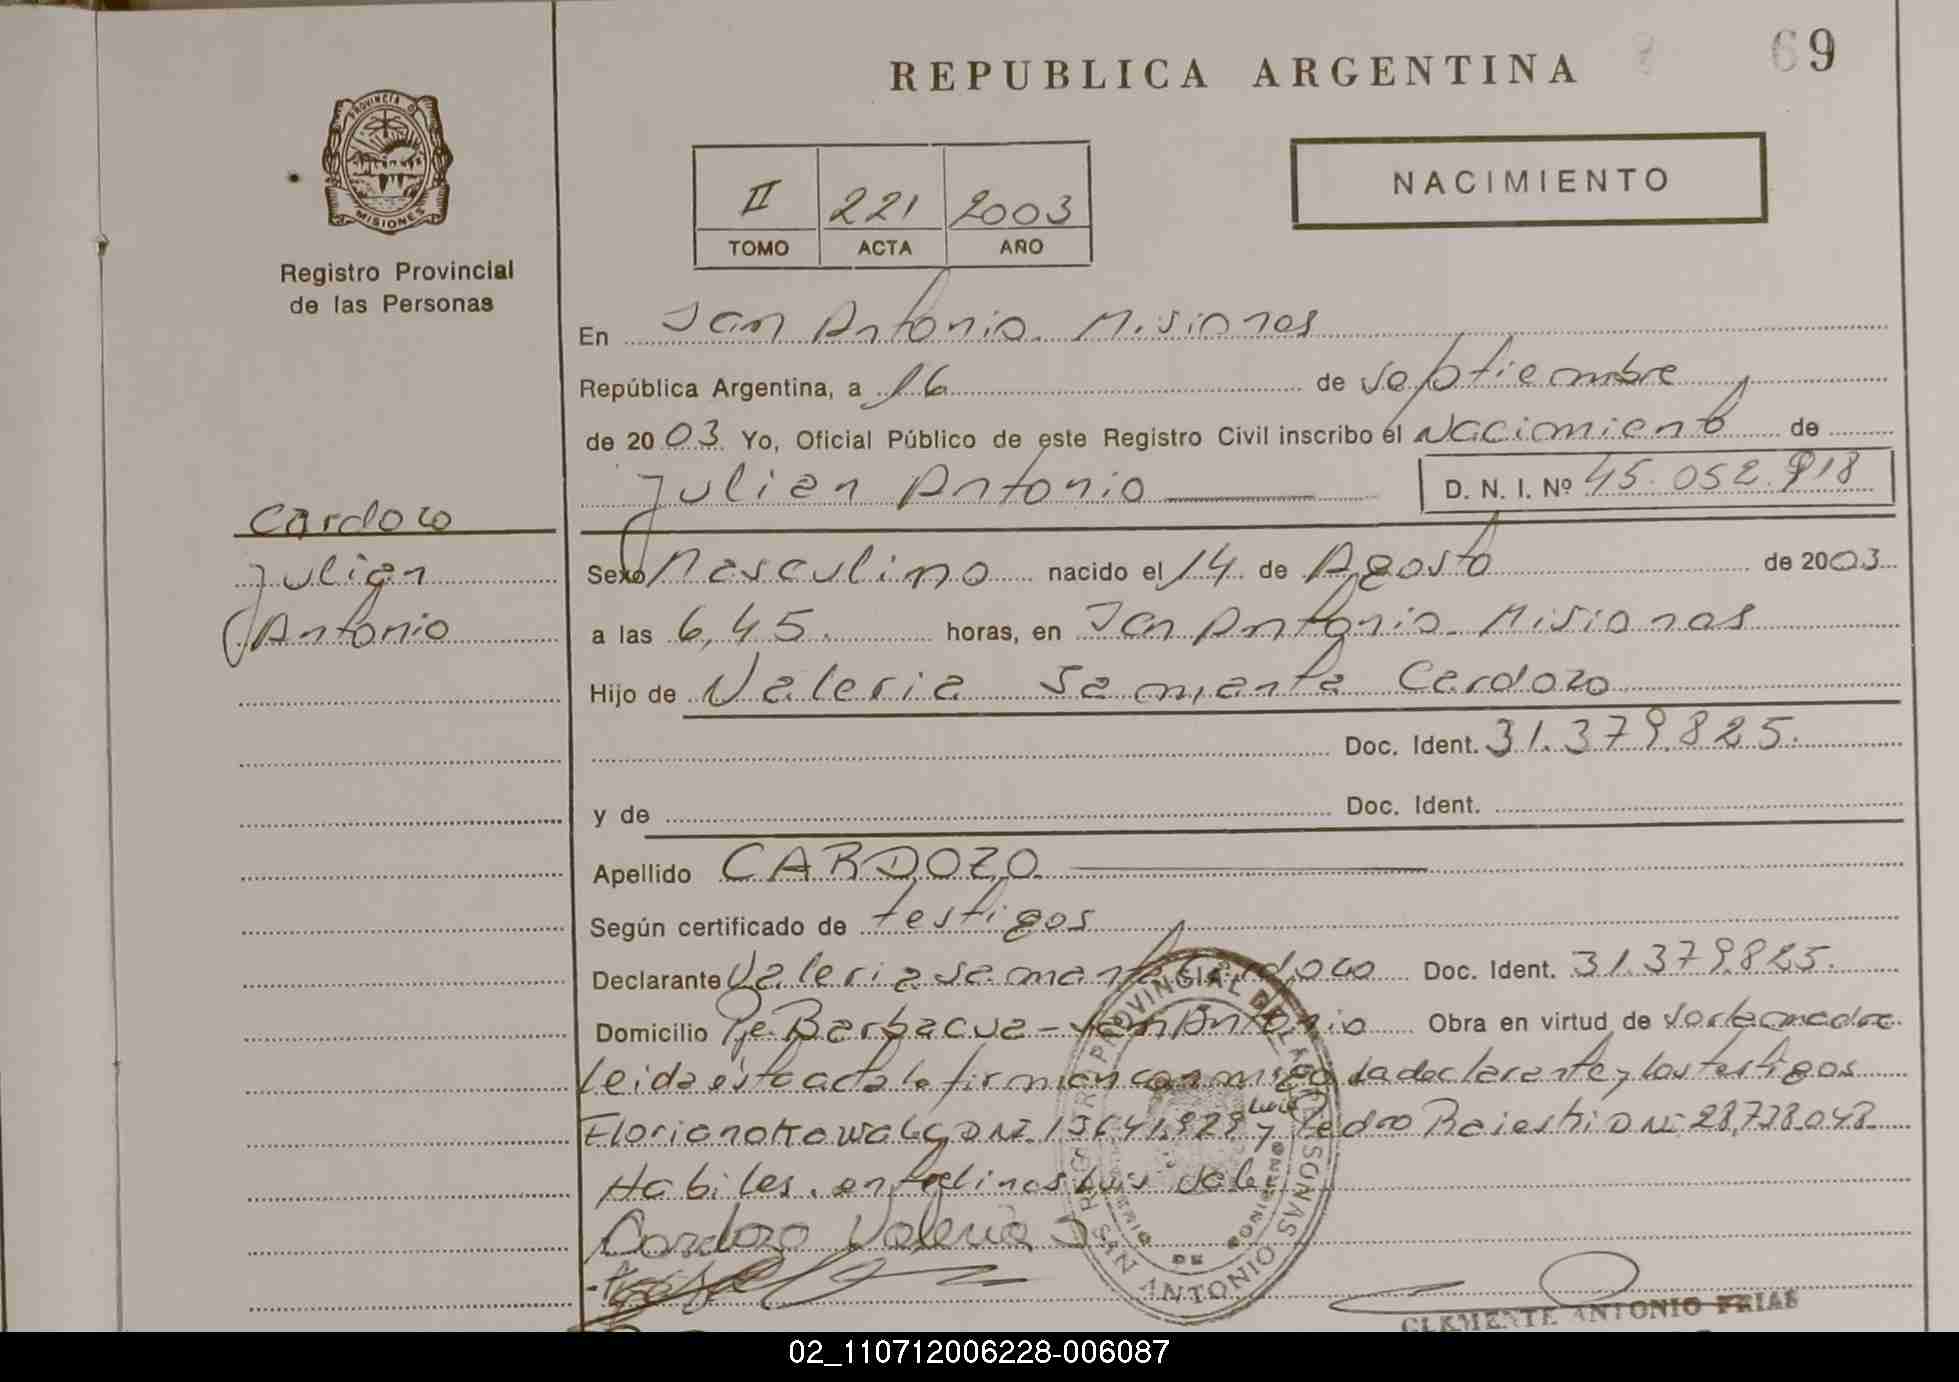 REPUBLICA ARGENTINA
69
PROVINCIA D
MISIONES
Registro Provincial
de las Personas
II 221 2003
TOMO ACTA AÑO
NACIMIENTO
En San Antonio. Misiones
República Argentina, a 16 de septiembre
de 2003 Yo, Oficial Público de este Registro Civil inscribo el Nacimiento de
Julian Antonio D. N. I. Nº 45.052.918
Cardozo
Julian
Antonio
Sexo Masculino nacido el 14 de Agosto de 2003
a las 6,45. horas, en San Antonio. Misiones
Hijo de Valeria Samanta Cardozo
Doc. Ident. 31.379.825.
y de Doc. Ident.
Apellido CARDOZO
Según certificado de testigos
Declarante Valeria Samanta Cardozo Doc. Ident. 31.379.825.
Domicilio Barbacua - San Antonio Obra en virtud de
Leida esta acta la firman conmigo la declarante y los testigos
DNI y Luis Pedro DNI 28.728.048
Habiles. entrelineas Luis vale
Cardozo Valeria S
REGISTRO PROVINCIAL DE LAS PERSONAS
SAN ANTONIO
MISIONES
DE
CLEMENTE ANTONIO FRIAS
02_110712006228-006087